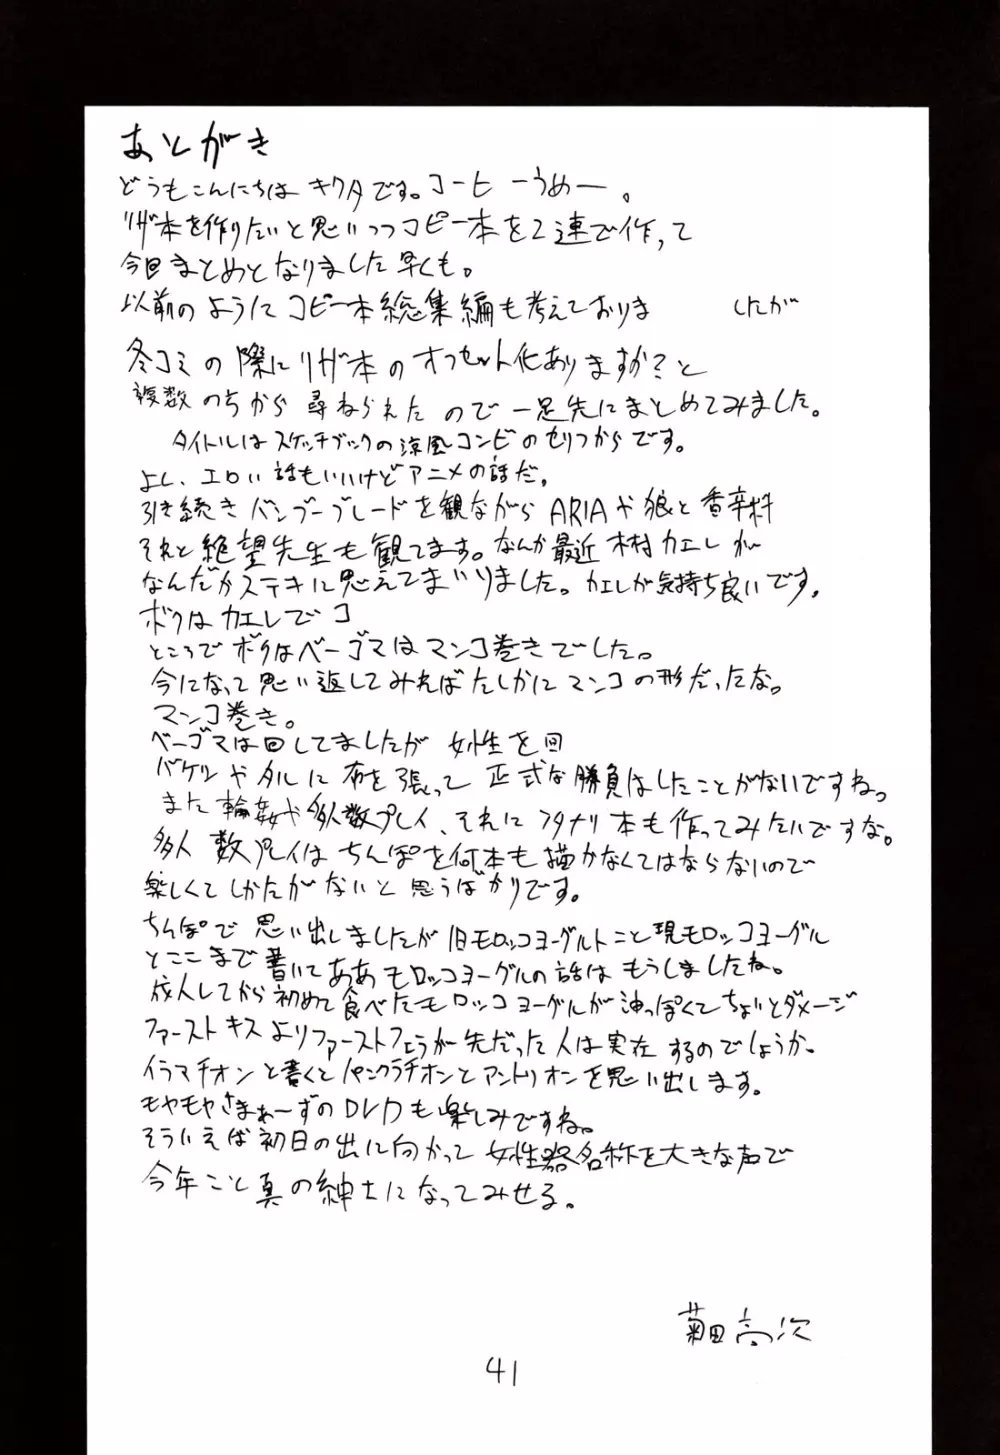 あとがき
どうもこんにちは キクタです。コーヒーうめー。
リザ本を作りたいと思いつつコピー本を2連で作って
今回まとめとなりました早くも。
以前のようにコピー本総集編も考えておりま したが
冬コミの際にリザ本のオフセット化ありますか?と
複数のちから尋ねられたので一足先にまとめてみました。
タイトルはスケッチブックの涼風コンビのセリフからです。
よし、エロい話もいいけどアニメの話だ。
引き続きバンブーブレードを観ながらARIAや狼と香辛料
それと絶望先生も観てます。なんか最近木村カエレが
なんだかステキに思えてまいりました。カエレが気持ち良いです。
ボクはカエレでコ
ところでボクはベーゴマはマンコ巻きでした。
今になって思い返してみればたしかにマンコの形だったな。
マンコ巻き。
ベーゴマは回してましたが 女性を回
バケツやタルに布を張って正式な勝負はしたことがないですね。
また輪姦や多人数プレイ、それにフタナリ本も作ってみたいですな。
多人数プレイはちんぽを何本も描かなくてはならないので
楽しくてしかたがないと思うばかりです。
ちんぽで思い出しましたが旧モロッコヨーグルトこと現モロッコヨーグル
とここまで書いてああモロッコヨーグルの話はもうしましたね。
成人してから初めて食べたモロッコヨーグルが油っぽくてちょいとダメージ
ファーストキスよりファーストフェラが先だった人は実在するのでしょうか。
イラマチオンと書くとパンクラチオンとアントリオンを思い出します。
モヤモヤさまぁ〜ずのDVDも楽しみですね。
そういえば初日の出に向かって女性器名称を大きな声で
今年こそ真の紳士になってみせる。
菊田高次
41